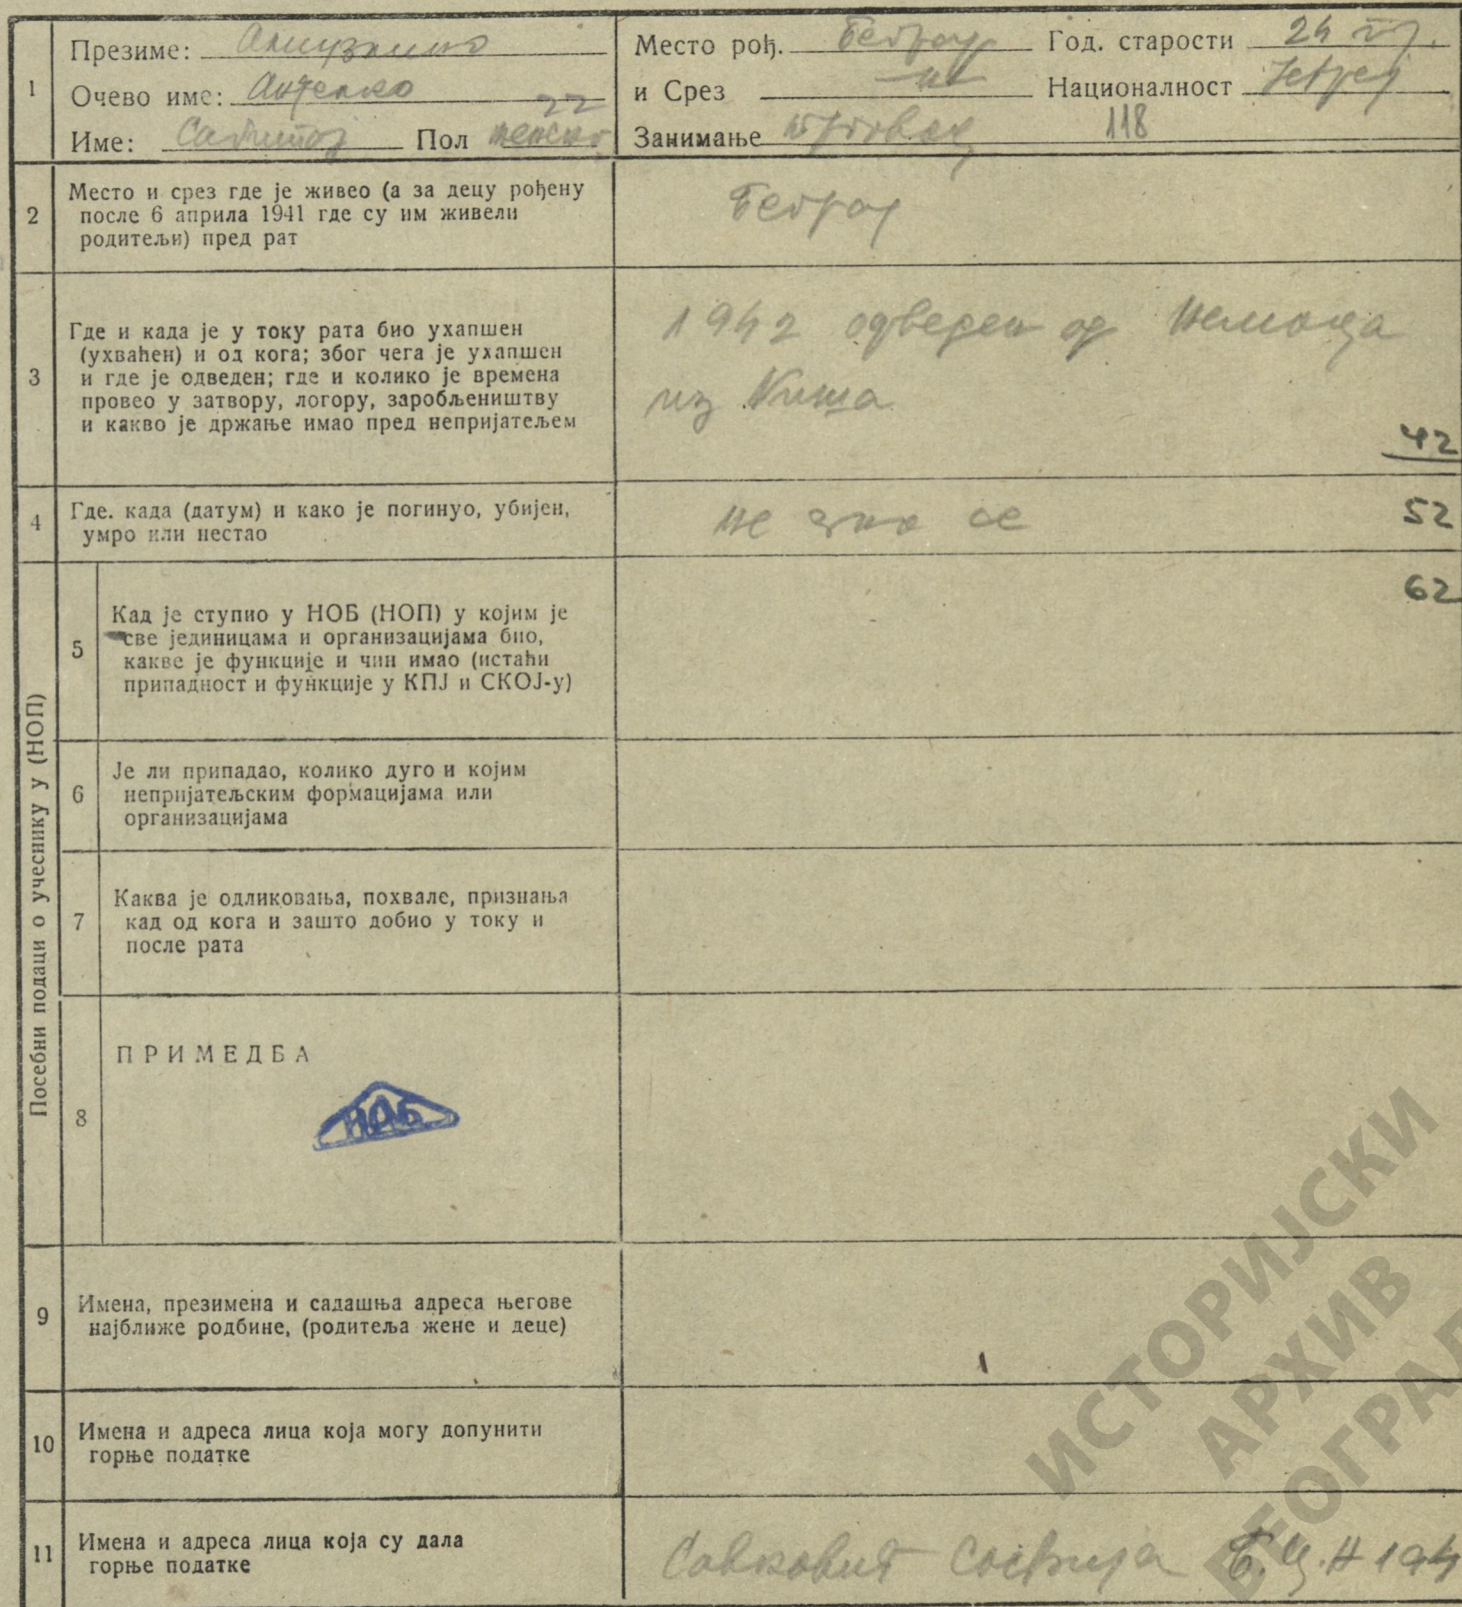 1
Презиме:
Место рођ. Београд Год. старости 24 г.
Очево име:
и Срез Националност Јевреј
22
Име: Пол женско
Занимање трговац 118
2
Место и срез где је живео (а за децу рођену
после 6 априла 1941 где су им живели
родитељи) пред рат
Београд
3
Где и када је у току рата био ухапшен
(ухваћен) и од кога; због чега је ухапшен
и где је одведен; где и колико је времена
провео у затвору, логору, заробљеништву
и какво је држање имао пред непријатељем
1942 одведен од Немаца
из Ниша
42
4
Где. када (датум) и како је погинуо, убијен,
умро или нестао
не зна се
52
Посебни подаци о учеснику у (НОП)
5
Кад је ступио у НОБ (НОП) у којим је
све јединицама и организацијама био,
какве је функције и чин имао (истаћи
припадност и функције у КПЈ и СКОЈ-у)
62
6
Је ли припадао, колико дуго и којим
непријатељским формацијама или
организацијама
7
Каква је одликовања, похвале, признања
кад од кога и зашто добио у току и
после рата
8
ПРИМЕДБА
ИАБ
9
Имена, презимена и садашња адреса његове
најближе родбине, (родитеља жене и деце)
10
Имена и адреса лица која могу допунити
горње податке
11
Имена и адреса лица која су дала
горње податке
Савковић Софија
ИСТОРИЈСКИ
АРХИВ
БЕОГРАД